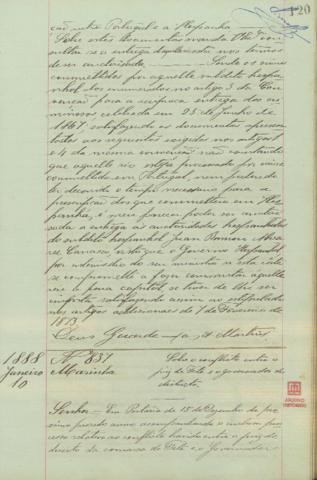 120
ção entre Portugal e a Hespanha.
Sobre estes documentos manda V. Ex.ª con-
sultar se a entrega d'aquelle
de ser auctorisada. Sendo os crimes
commettidos por aquelle subdito hespa-
nhol dos enumerados no artigo 3 da Con-
venção para a reciproca entrega dos cri-
minosos celebrada em 25 de Junho de
1867 satisfazendo os documentos apresen-
tados aos requisitos exigidos nos artigos
e 4 da mesma convenção não constando
que aquelle réo esteja processado por crime
commettido em Portugal, nem tendo
decorrido o tempo necessario para a
prescripção dos que commetteu em Hes-
panha, é meu parecer poder ser aucto-
risada a entrega ás auctoridades hespanholas
do subdito hespanhol Juan Ramon
Carrasco, visto que o Governo Hespanhol
por intermedio do seu ministro n'esta côrte
se compromette a fazer commutar aquelle
réo a pena capital se tiver de lhe ser
imposta satisfazendo assim ao estipulado
nos artigos addicionaes de 7 de Fevereiro de
1873.
Deus Guarde A. Martins
1888 N.º 837 Sobre o conflicto entre o
Janeiro Marinha juiz de Tete e o governador do
10 districto
ARQUIVO
Senhor – Em Portaria de 15 de Dezembro do pro-
ximo passado anno acompanhando o incluso pro-
cesso relativo ao conflicto havido entre o juiz de
direito da comarca de Tete e o Governador